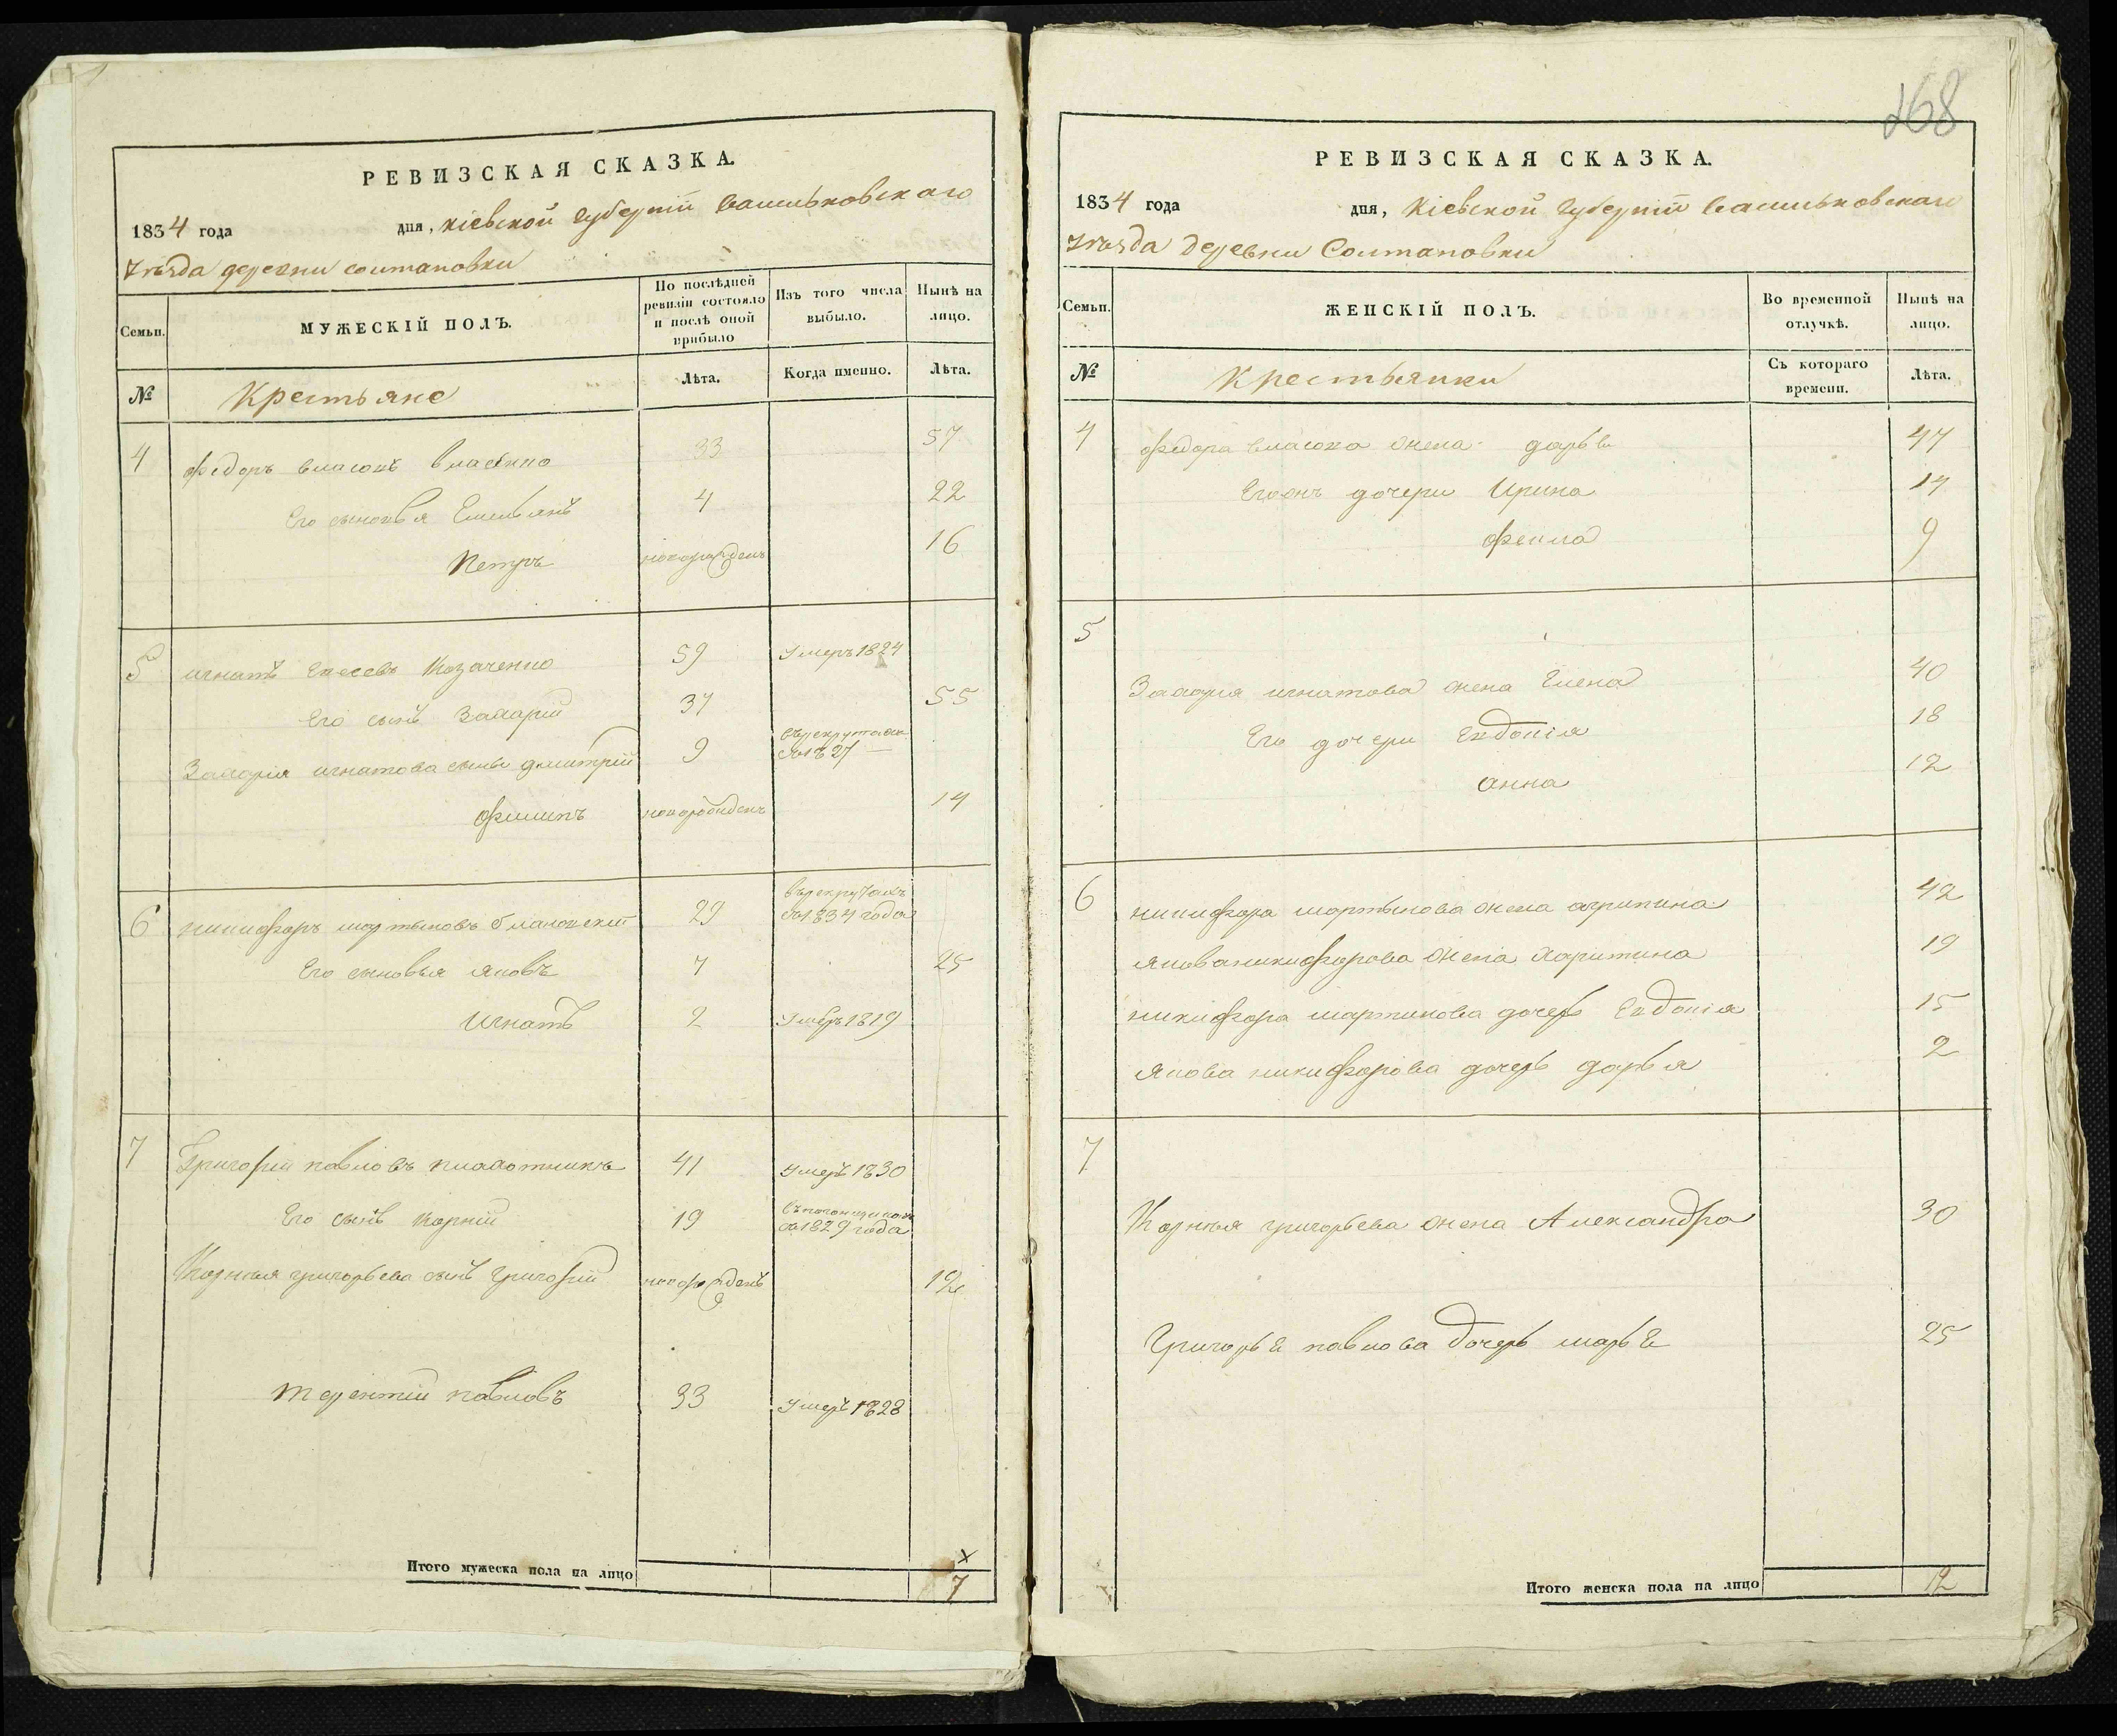 268
РЕВИЗСКАЯ СКАЗКА.
1834 года дня, кіевской губерніи васильковскаго
уѣзда деревни солтановки
Семьи.
МУЖЕСКІЙ ПОЛЪ.
По послѣдней ревизіи состояло и послѣ оной прибыло
Изъ того числа выбыло.
Нынѣ на лицо.
№
Крестьяне
Лѣта.
Когда именно.
Лѣта.
4 федоръ власовъ 33 57
Его сыновья Емельянъ 4 22
Петръ новорожденъ 16
5 игнатъ Козаченко 59 Умеръ 1824
Его сынъ Захарій 37 55
Захарія игнатова сыны дмитрій 9 въ рекрутахъ 27
филипъ новорожденъ 14
6 никифоръ мартыновъ 29 въ рекрутахъ 1834 года
Его сыновья яковъ 7 25
Игнатъ 2 Умеръ 1819
7 Григорій павловъ 41 Умеръ 1830
Его сынъ Корній 19 1829 года
Корнія григорьева сынъ григорій новорожденъ 12
терентій павловъ 33 Умеръ 1828
Итого мужеска пола на лицо
х
7
РЕВИЗСКАЯ СКАЗКА.
1834 года дня, Кіевской губерніи васильковскаго
уѣзда деревни Солтановки
Семьи.
ЖЕНСКІЙ ПОЛЪ.
Во временной отлучкѣ.
Нынѣ на лицо.
№
Крестьянки
Съ котораго времени.
Лѣта.
4 федора власова жена дарья 47
дочери Ирина 14
фекла 9
5
Захарія игнатова жена Елена 40
Его дочери Евдокія 18
анна 12
6 никифора мартынова жена агрипина 42
якова никифорова жена харитина 19
никифора мартинова дочерь Евдокія 15
Якова никифорова дочерь дарья 2
7
Корнія григорьева жена Александра 30
Григорья павлова дочерь марья 25
Итого женска пола на лицо 12